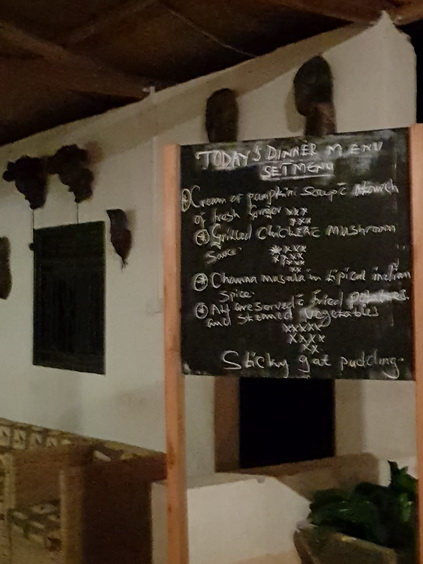 TODAY'S DINNER MENU
SET MENU
① Cream or pumpkin Soup č
of fresh Ginger xxx
xxx
② Grilled Chicken č Mushroom
Sauce. xxxx
xxxx
xx
③ Channa masala in tipical indian
Spice.
④ All are Served č fried potatoes.
and Stemed vegetables
xxxxx
xxxx
xx
Sticky gat pudding.